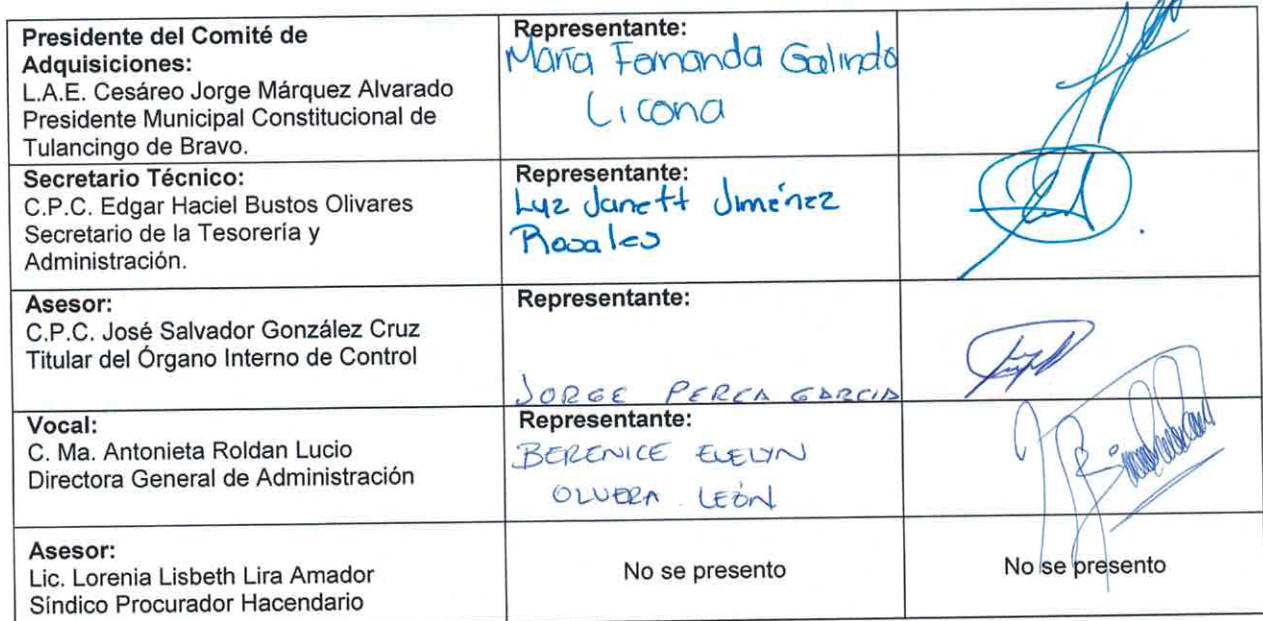 Presidente del Comité de
Adquisiciones:
L.A.E. Cesáreo Jorge Márquez Alvarado
Presidente Municipal Constitucional de
Tulancingo de Bravo.
Representante:
María Fernanda Galindo
Licona
Secretario Técnico:
C.P.C. Edgar Haciel Bustos Olivares
Secretario de la Tesorería y
Administración.
Representante:
Luz Janett Jiménez
Rosales
Asesor:
C.P.C. José Salvador González Cruz
Titular del Órgano Interno de Control
Representante:
JORGE PEREA GARCIA
Vocal:
C. Ma. Antonieta Roldan Lucio
Directora General de Administración
Representante:
BERENICE EVELYN
OLVERA LEÓN
Asesor:
Lic. Lorenia Lisbeth Lira Amador
Síndico Procurador Hacendario
No se presento
No se presento